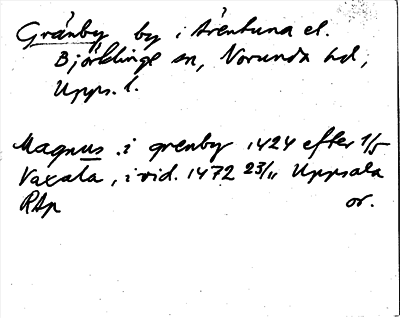 Gränby by i Ärentuna el.
Björklinge sn, Norunda hd,
Upps. l.
Magnus i grenby 1424 efter 1/5
Vaxala, i vid. 1472 23/11 Uppsala
RAp or.